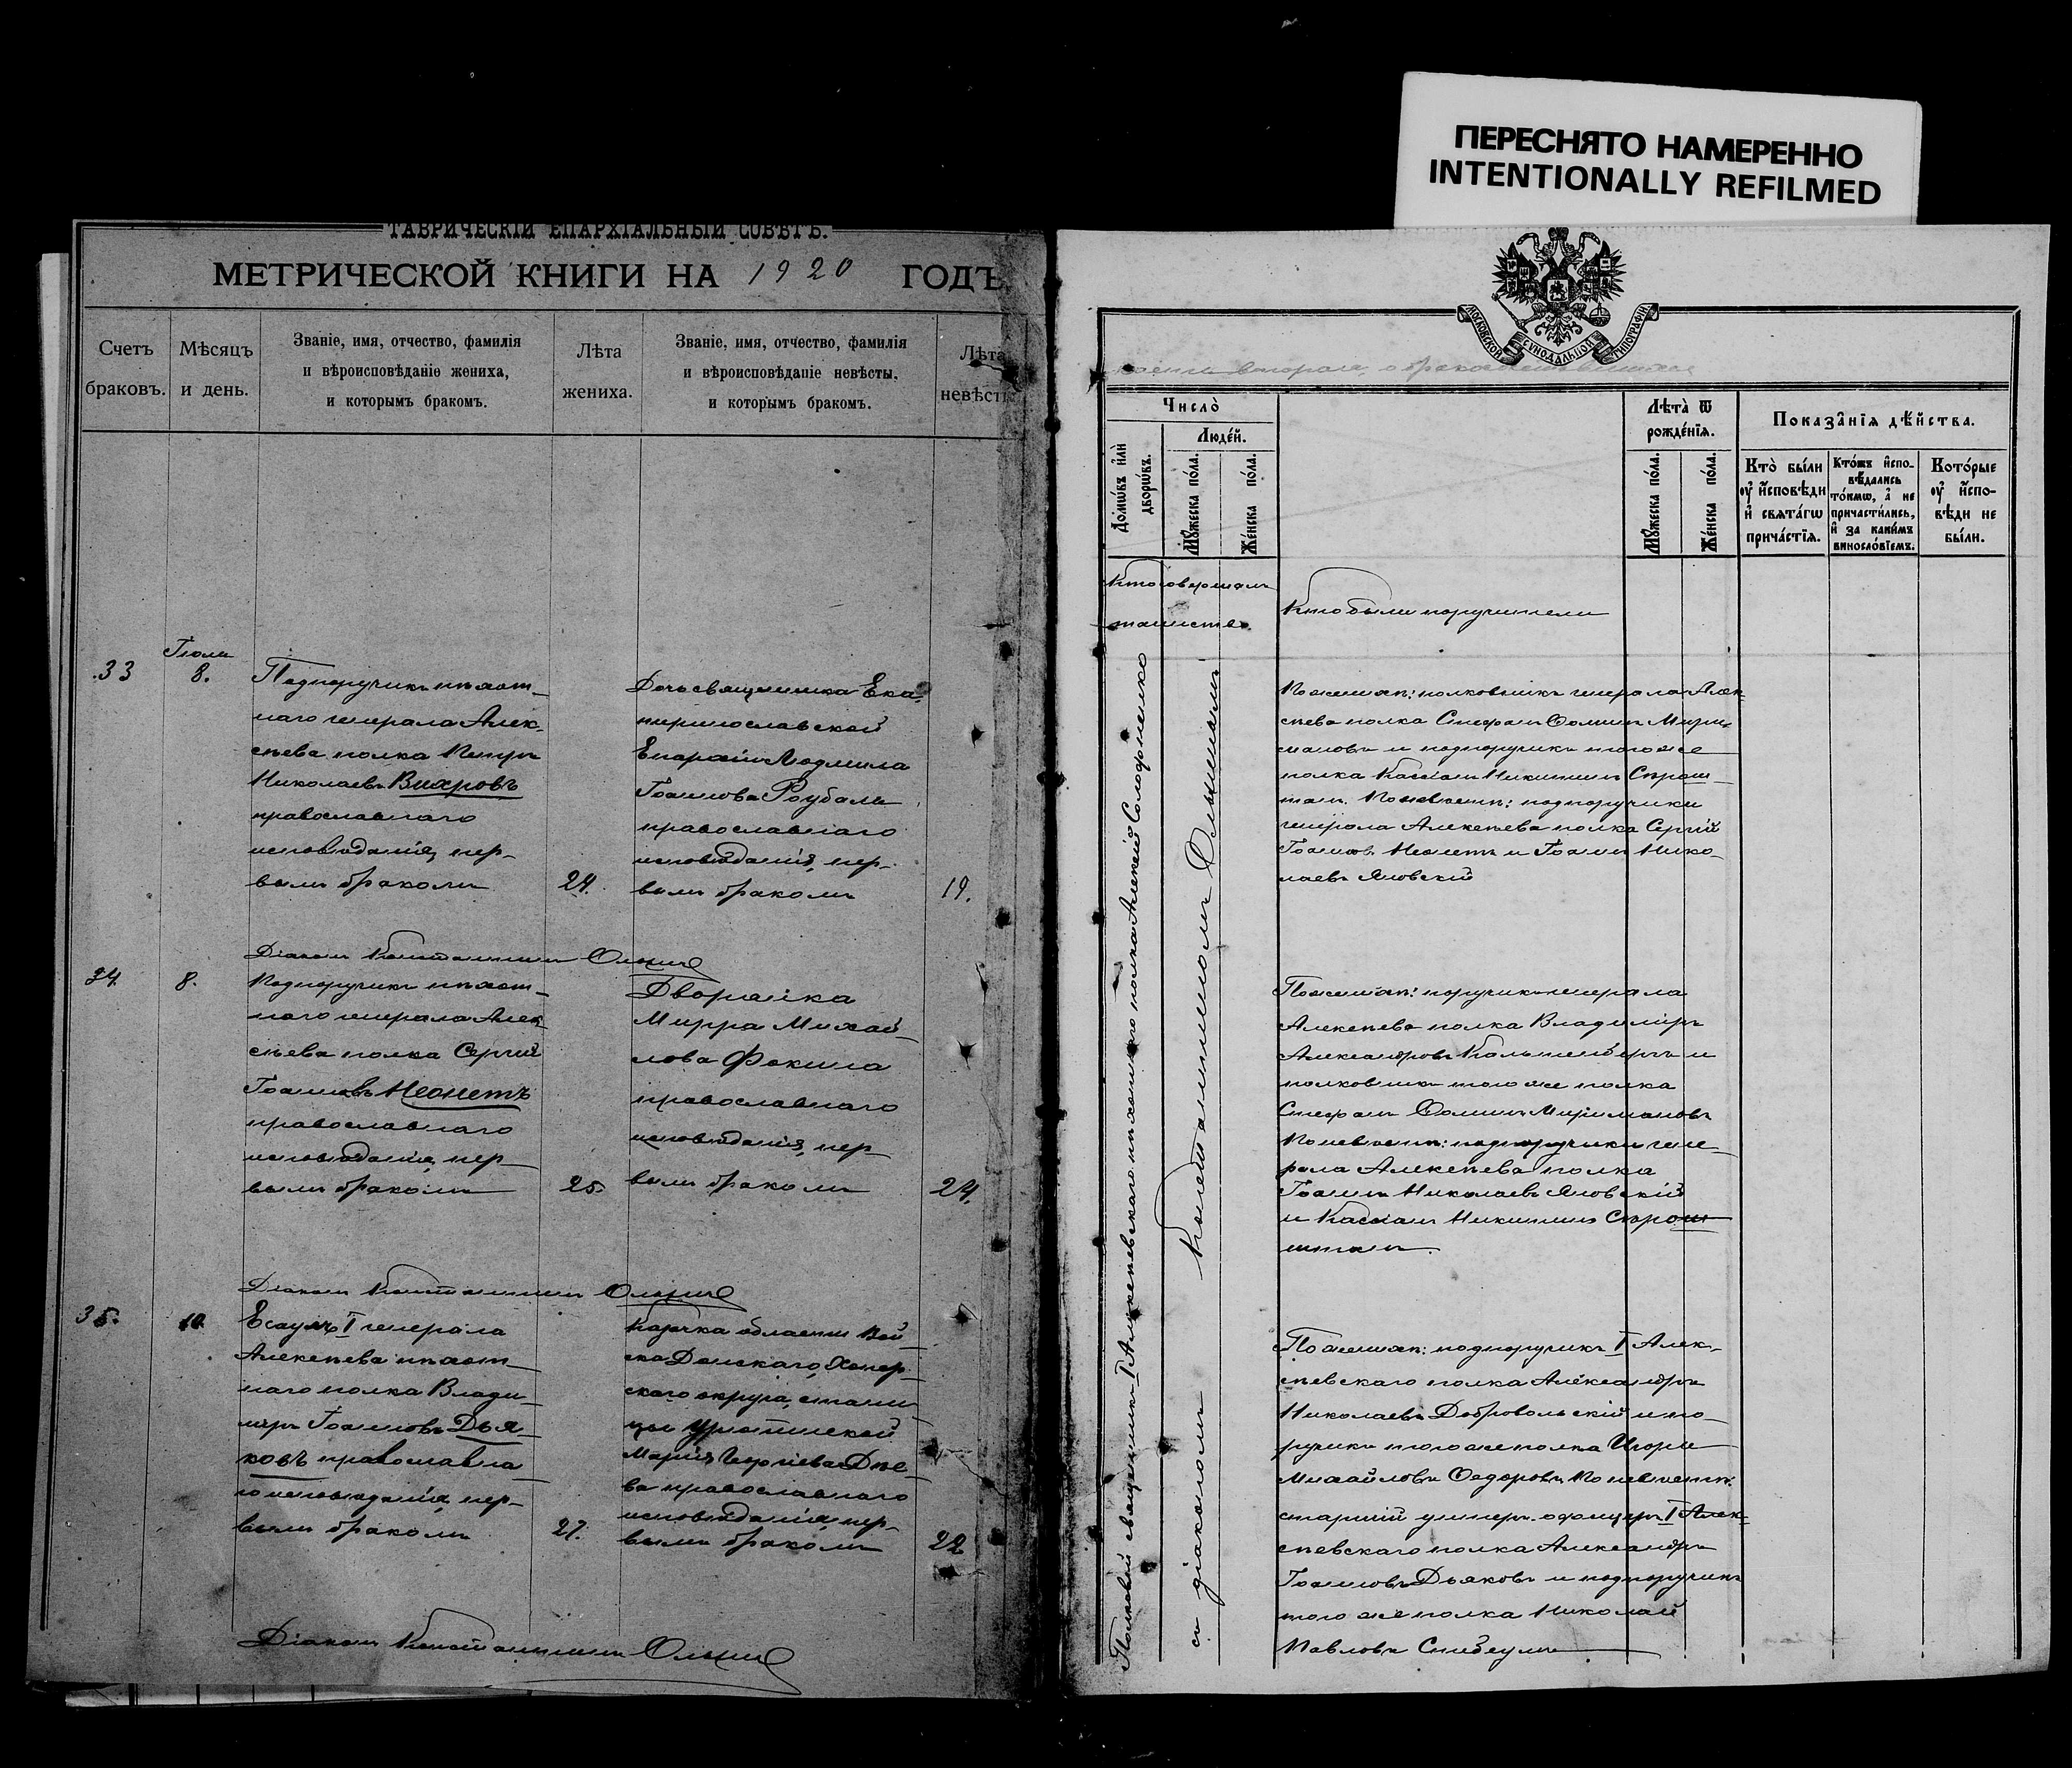 ПЕРЕСНЯТО НАМЕРЕННО
INTENTIONALLY REFILMED
ТАВРИЧЕСКІЙ ЕПАРХІАЛЬНЫЙ СОВѢТЪ.
МЕТРИЧЕСКОЙ КНИГИ НА 1920 ГОДЪ.
Счетъ
браковъ.
Мѣсяцъ
и день.
Званіе, имя, отчество, фамилія
и вѣроисповѣданіе жениха,
и которымъ бракомъ.
Лѣта
жениха.
Званіе, имя, отчество, фамилія
и вѣроисповѣданіе невѣсты,
и которымъ бракомъ.
Лѣта
невѣсты
33
Іюля
8.
Подпоручикъ пѣхот-
наго генерала Алек-
сѣева полка Петръ
Николаевъ Вихровъ
православнаго
исповѣданія, пер-
вымъ бракомъ
24.
Дочь священника Ека-
теринославской
Епархіи Людмила
Іоаннова Роубаль
православнаго
исповѣданія, пер-
вымъ бракомъ
19.
Діаконъ Константинъ
34.
8.
Подпоручикъ пѣхот-
наго генерала Алек-
сѣева полка Сергій
Іоанновъ Неонетъ
православнаго
исповѣданія, пер-
вымъ бракомъ
25.
Дворянка
Мирра Михай-
лова Фокина
православнаго
исповѣданія, пер-
вымъ бракомъ
24.
Діаконъ Константинъ
35.
10.
Есаулъ I генерала
Алексѣева пѣхот-
наго полка Влади-
міръ Іоанновъ Дья-
ковъ православна-
го исповѣданія, пер-
вымъ бракомъ
27.
Казачка области Вой-
ска Донскаго, Хопер-
скаго округа, стани-
цы Урюпинской
Марія Георгіева
православнаго
исповѣданія, пер-
вымъ бракомъ
22
Діаконъ Константинъ
МОСКОВСКОЙ СѴНОДАЛЬНОЙ ТИПОГРАФІИ
Число̀
Домѡ́въ и҆лѝ дворѡ́въ.
Люде́й.
Мꙋ́жеска по́ла.
Же́нска по́ла.
Лѣ́та ѿ
рожде́нїѧ.
Мꙋ́жеска по́ла.
Же́нска по́ла.
Показа̑нїѧ дѣ́йства.
Кто̀ бы́ли
ᲂу҆ и҆́сповѣди
и҆ свѧта́гѡ
прича́стїѧ.
Кто́жъ и҆спо-
вѣ́дались
то́кмѡ, а҆ не
причасти́лись,
и҆ за каки́мъ
виносло́вїемъ.
Кото́рые
ᲂу҆ и҆́спо-
вѣди не
бы́ли.
Кто совершалъ
таинство
Кто были поручители
Полковой священникъ I Алексѣевскаго пѣхотнаго полка Алексій
съ діакономъ Константиномъ
По женихѣ: полковникъ генерала Алек-
сѣева полка Стефанъ Ѳоминъ Мири-
мановъ и подпоручикъ того же
полка Кассіанъ Никитинъ
По невѣстѣ: подпоручики
генерала Алексѣева полка Сергій
Іоанновъ Неонетъ и Іоаннъ Нико-
лаевъ Яновскій
По женихѣ: поручикъ генерала
Алексѣева полка Владиміръ
Александровъ и
полковникъ того же полка
Стефанъ Ѳоминъ Миримановъ
По невѣстѣ: подпоручики гене-
рала Алексѣева полка
Іоаннъ Николаевъ Яновскій
и Кассіанъ Никитинъ
По женихѣ: подпоручикъ I Алек-
сѣевскаго полка Александръ
Николаевъ Добровольскій и по-
ручикъ того же полка Игорь
Михайловъ Ѳедоровъ. По невѣстѣ:
старшій унтеръ-офицеръ I Алек-
сѣевскаго полка Александръ
Іоанновъ Дьяковъ и подпоручикъ
того же полка Николай
Павловъ